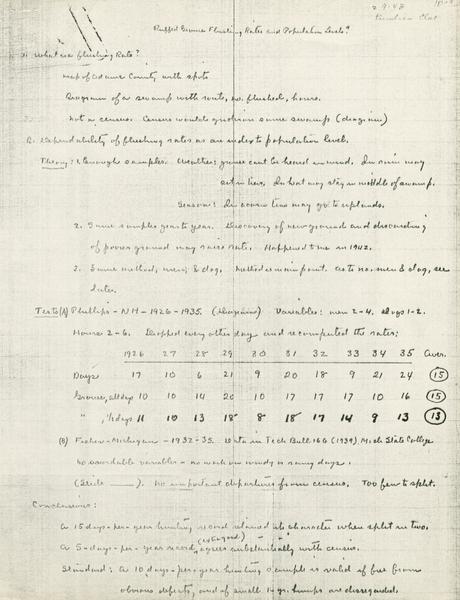 2-9-48
Ruffed Grouse Flushing Rates and Population Levels
A. What is a flushing Rate?
Map of Adams County with spots
Diagram of a swamp with route, no. flushed, hours.
Not a census. Census would gridiron same swamp (diagram)
B. Dependability of flushing rates as an index to population level.
Theory: 1. Enough samples. Weather: grouse can't be heard in wind. In rain may
sit in trees. In heat may stay in middle of swamp.
Season: In acorn time may go to uplands.
2. Same samples year to year. Discovery of new ground and discarding
of poorer ground may raise rate. Happened to me in 1942.
3. Same method, men & dog. Method is main point. As to no. men & dog, see
later.
Tests (A) Phillips - NH - 1926-1935. (Diagram) Variables: men 2-4. dogs 1-2.
Hours 2-6. Dropped every other day and recomputed the rates:
1926 27 28 29 30 31 32 33 34 35 Aver.
Days 17 10 6 21 9 20 18 9 21 24 (15)
Grouse, all days 10 10 14 20 10 17 17 17 10 16 (15)
" , ½ days 11 10 13 18 8 18 17 14 9 13 (13)
(B) Fisher - Michigan - 1932-35. Data in Tech Bull 166 (1939) Mich State College
No avoidable variables - no work on windy or rainy days.
(Slide ___). No important departures from census. Too few to split.
Conclusions:
A 15 days-per-year hunting record retained its character when split in two.
A 5-days-per-year record, (safeguarded) agrees substantially with census.
Standard: A 10 days-per-year hunting sample is valid if free from
obvious defects, and if small 1-yr. humps are disregarded.